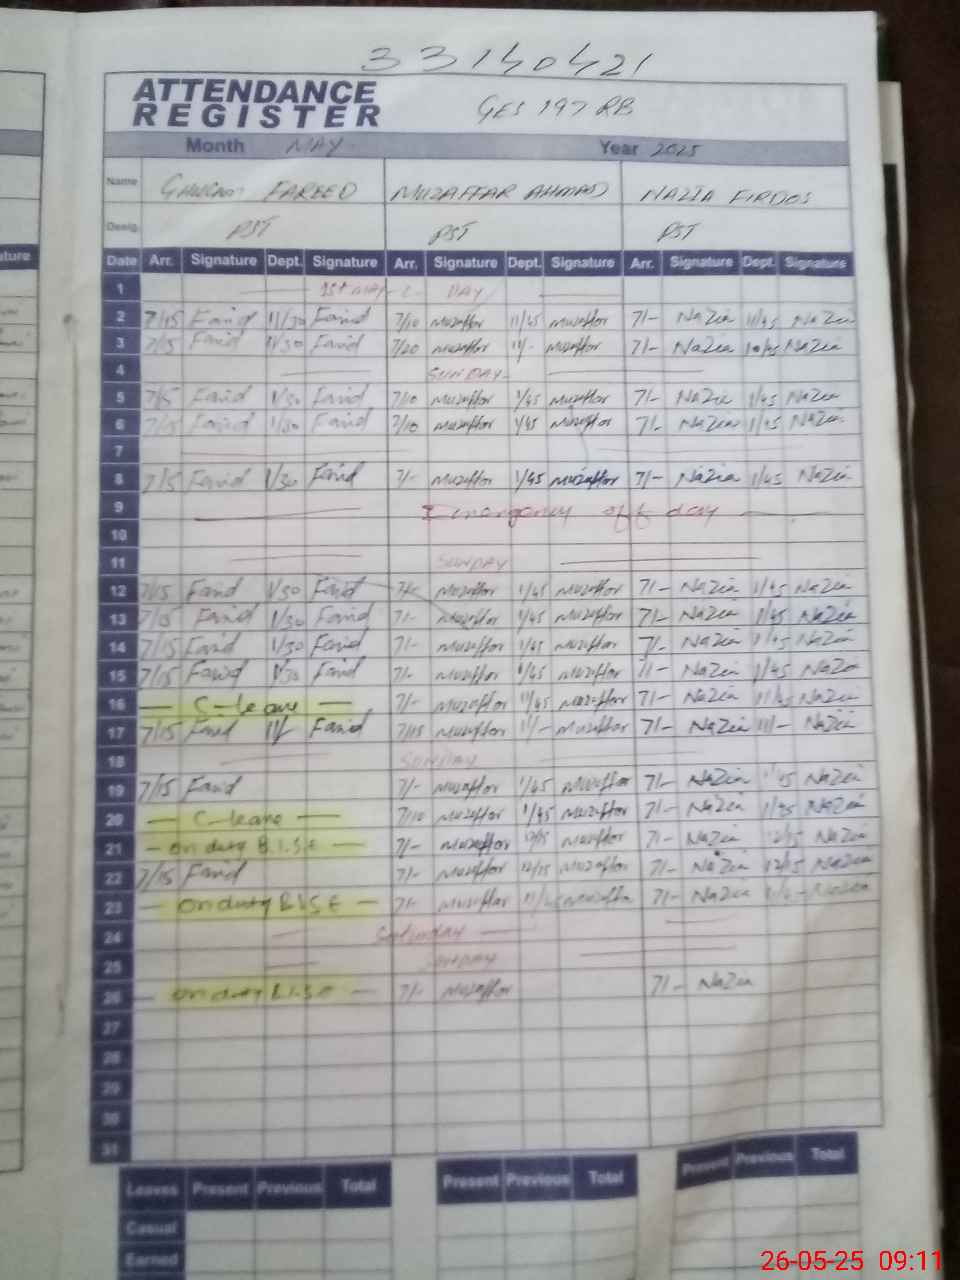 33140421
ATTENDANCE
REGISTER
GES 197 RB
Month MAY Year 2025
Name GHULAM FAREED MUZAFFAR AHMAD NAZIA FIRDOS
Desig. PST PST PST
Date Arr. Signature Dept. Signature Arr. Signature Dept. Signature Arr. Signature Dept. Signature
1 1st MAY DAY
2 7/15 Farid 11/30 Farid 7/10 Muzaffar 11/45 Muzaffar 7/- Nazia 11/45 Nazia
3 7/15 Farid 11/30 Farid 7/20 Muzaffar 11/- Muzaffar 7/- Nazia 10/45 Nazia
4 SUNDAY
5 7/15 Farid 1/30 Farid 7/10 Muzaffar 1/45 Muzaffar 7/- Nazia 1/45 Nazia
6 7/15 Farid 1/30 Farid 7/10 Muzaffar 1/45 Muzaffar 7/- Nazia 1/45 Nazia
7
8 7/15 Farid 1/30 Farid 7/- Muzaffar 1/45 Muzaffar 7/- Nazia 1/45 Nazia
9 Emergency off day
10
11 SUNDAY
12 7/15 Farid 1/30 Farid 7/- Muzaffar 1/45 Muzaffar 7/- Nazia 1/45 Nazia
13 7/15 Farid 1/30 Farid 7/- Muzaffar 1/45 Muzaffar 7/- Nazia 1/45 Nazia
14 7/15 Farid 1/30 Farid 7/- Muzaffar 1/45 Muzaffar 7/- Nazia 1/45 Nazia
15 7/15 Farid 1/30 Farid 7/- Muzaffar 1/45 Muzaffar 7/- Nazia 1/45 Nazia
16 C-leave 7/- Muzaffar 11/45 Muzaffar 7/- Nazia 11/45 Nazia
17 7/15 Farid 11/- Farid 7/15 Muzaffar 11/- Muzaffar 7/- Nazia 11/- Nazia
18 SUNDAY
19 7/15 Farid 7/- Muzaffar 1/45 Muzaffar 7/- Nazia 1/45 Nazia
20 C-leave 7/10 Muzaffar 1/45 Muzaffar 7/- Nazia 1/45 Nazia
21 on duty B.I.S.E 7/- Muzaffar 12/15 Muzaffar 7/- Nazia 12/15 Nazia
22 7/15 Farid 7/- Muzaffar 12/15 Muzaffar 7/- Nazia 12/15 Nazia
23 on duty B.I.S.E 7/- Muzaffar Muzaffar 7/- Nazia Nazia
24 Saturday
25 SUNDAY
26 on duty B.I.S.E 7/- Muzaffar 7/- Nazia
27
28
29
30
31
Leaves Present Previous Total Present Previous Total Present Previous Total
Casual
Earned
26-05-25 09:11